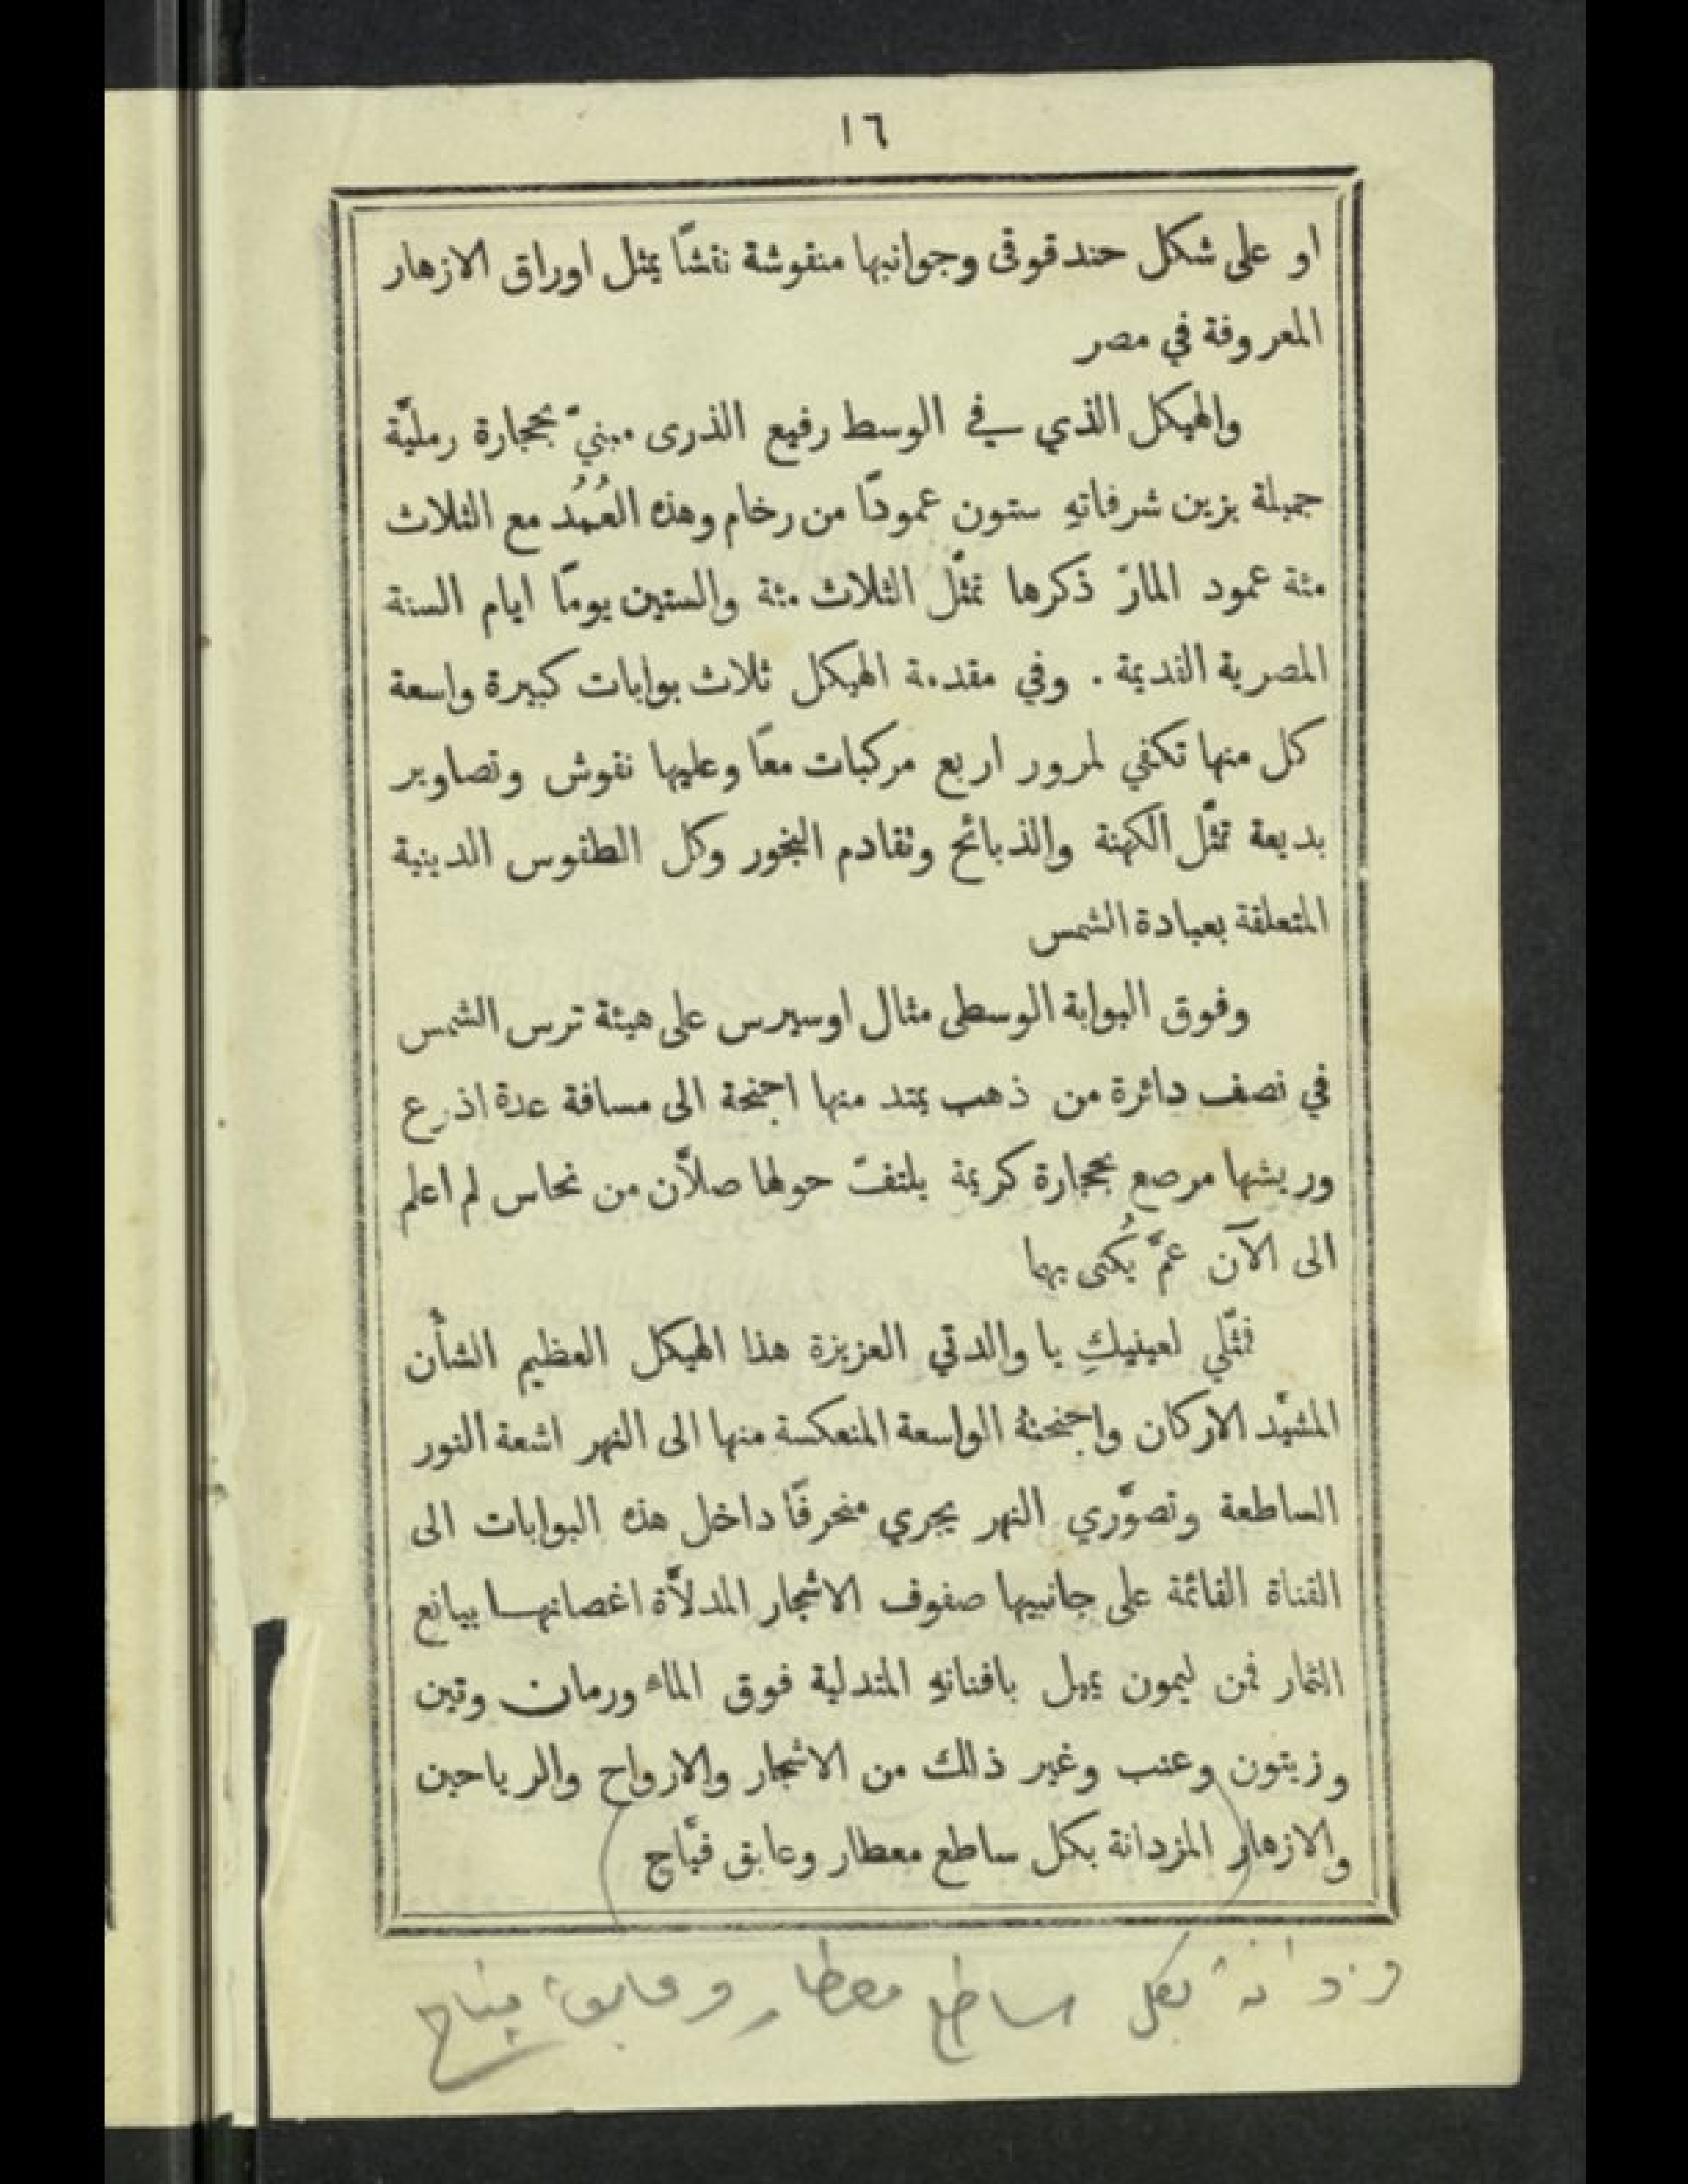 ١٦
او على شكل حندقوقى وجوانبها منقوشة نقشًا يمثل اوراق الازهار
المعروفة في مصر
والهيكل الذي في الوسط رفيع الذرى مبنيّ بحجارة رمليَّة
جميلة يزين شرفاتهِ ستون عمودًا من رخام وهذه العُمُد مع الثلاث
مئة عمود المارّ ذكرها تمثّل الثلاث مئة والستين يومًا ايام السنة
المصرية القديمة . وفي مقدمة الهيكل ثلاث بوابات كبيرة واسعة
كل منها تكفي لمرور اربع مركبات معًا وعليها نقوش وتصاوير
بديعة تمثّل الكهنة والذبائح وتقادم البخور وكل الطقوس الدينية
المتعلقة بعبادة الشمس
وفوق البوابة الوسطى مثال اوسيرس على هيئة ترس الشمس
في نصف دائرة من ذهب يمتد منها اجنحة الى مسافة عدة اذرع
وريشها مرصع بحجارة كريمة يلتفّ حولها صلاَّن من نحاس لم اعلم
الى الآن عمَّ يُكنى بهما
فمثّلي لعينيكِ يا والدتي العزيزة هذا الهيكل العظيم الشأن
المشيَّد الاركان واجنحتهُ الواسعة المنعكسة منها الى النهر اشعة النور
الساطعة وتصوَّري النهر يجري منحرفًا داخل هذه البوابات الى
القناة القائمة على جانبيها صفوف الاشجار المدلاَّة اغصانها بيانع
الثمار فمن ليمون يميل بافنانهِ المتدلية فوق الماء ورمان وتين
وزيتون وعنب وغير ذالك من الاشجار والارواح والرياحين
والازهار (المزدانة بكل ساطع معطار وعابق فيَّاح)
بكل ساطع معطار وعابق فياح